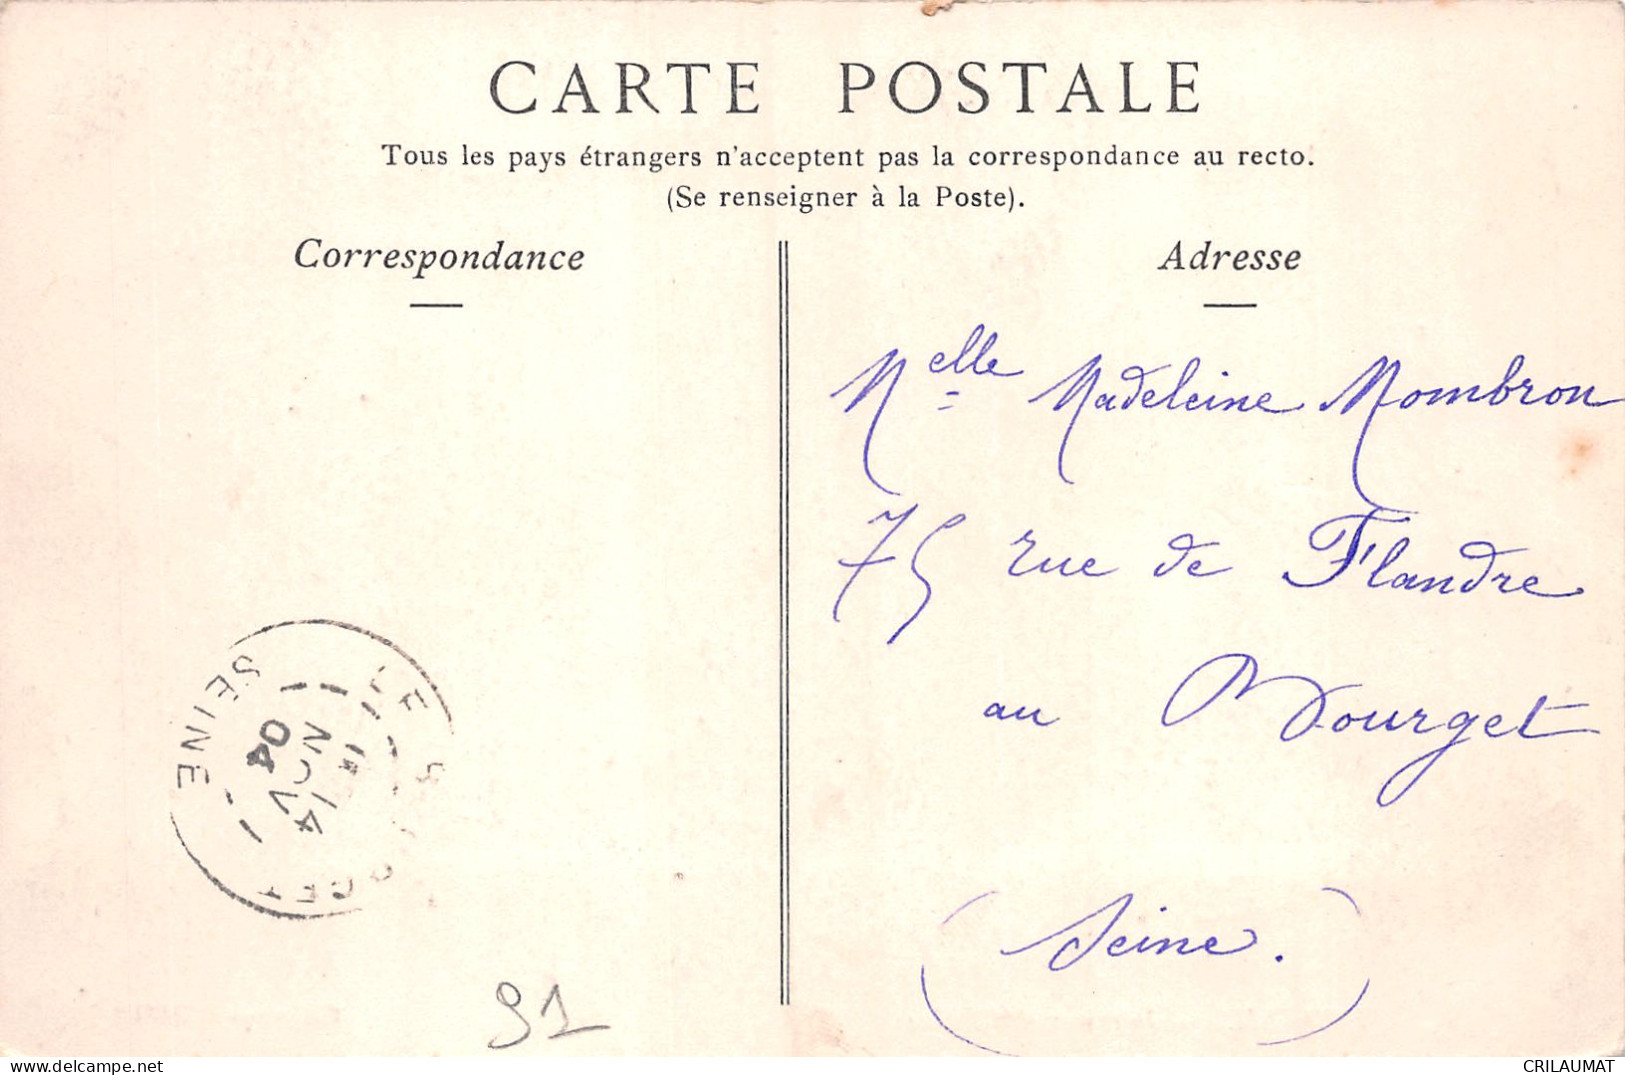 CARTE POSTALE
Tous les pays étrangers n'acceptent pas la correspondance au recto.
(Se renseigner à la Poste).
Correspondance
Adresse
Melle Madeleine Mombron
75 rue de Flandre
au Bourget
(Seine.)
SEINE
04
91
delcampe.net
CRILAUMAT